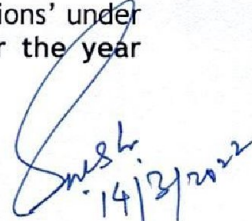 ions’ under
r the year
14/3/2022